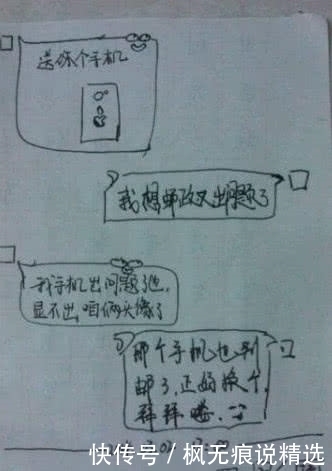 送你个手机
我想邮政又出问题了
我手机出问题了也,
显不出咱俩头像了
那个手机也别
邮了,正好换个,
拜拜喽.
快传号／枫无痕说精选